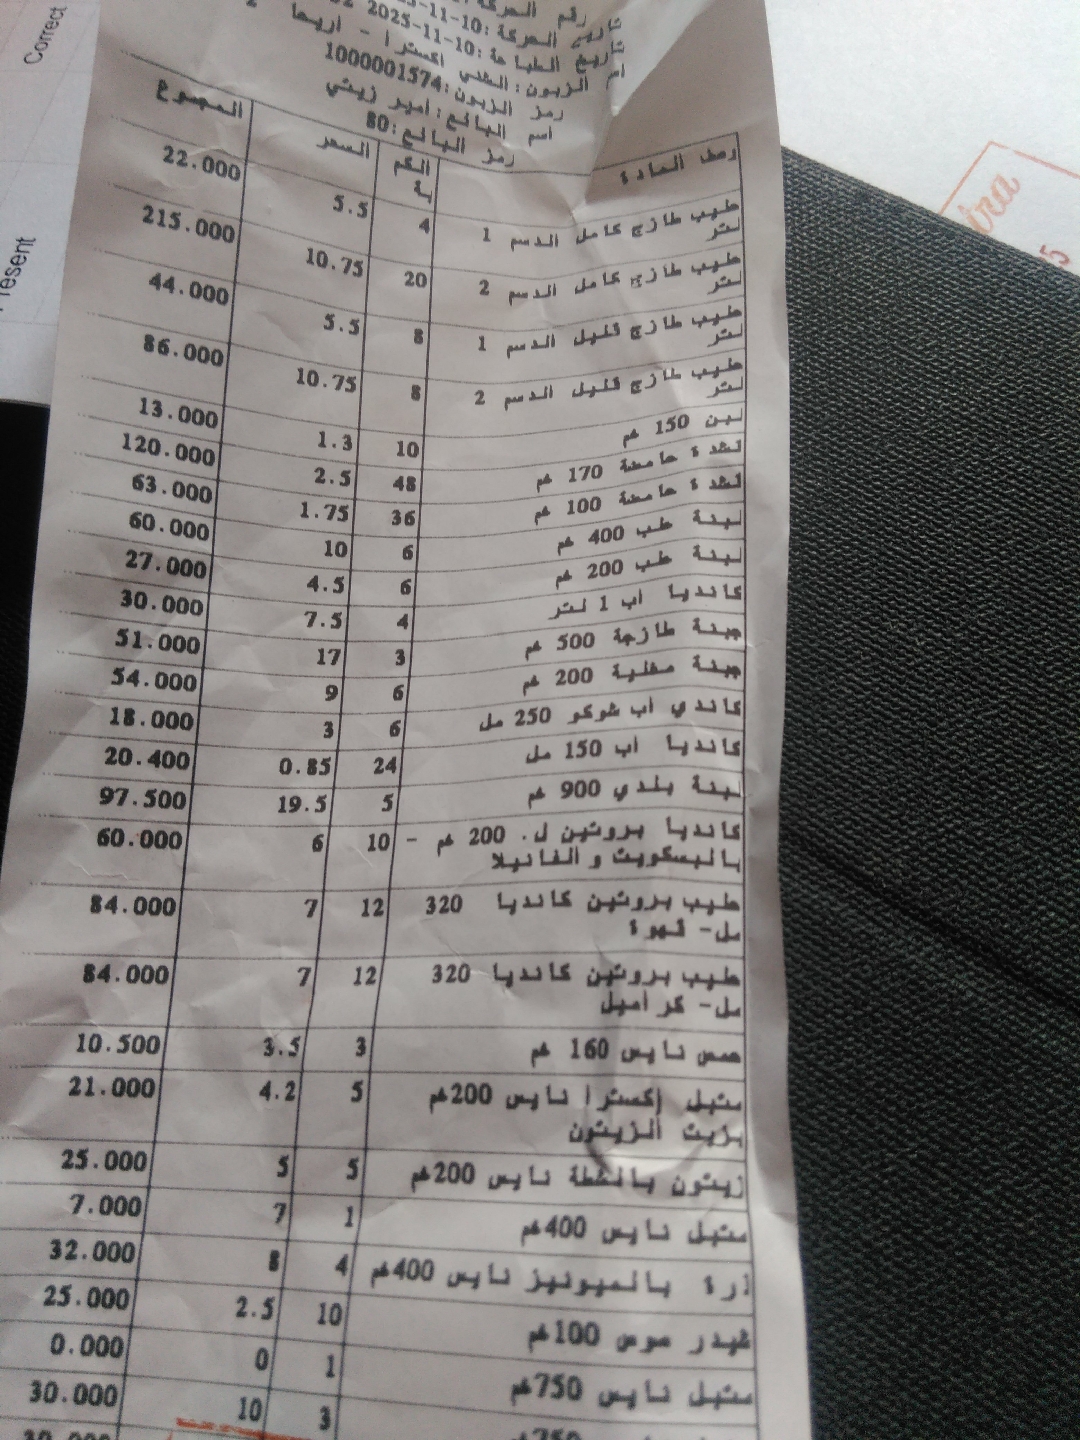 Correct
resent
رقم الحركة:
تاريخ الحركة: 10-11-2025
تاريخ الطباعة: 10-11-2025
اسم الزبون: الشني اكسترا - اريحا
رمز الزبون: 1000001574
اسم البائع: امير زيتي
رمز البائع: 80
وصف المادة الكمية السعر المجموع
حليب طازج كامل الدسم 1 لتر 4 5.5 22.000
حليب طازج كامل الدسم 2 لتر 20 10.75 215.000
حليب طازج قليل الدسم 1 لتر 8 5.5 44.000
حليب طازج قليل الدسم 2 لتر 8 10.75 86.000
لبن 150 غم 10 1.3 13.000
قشدة حامضة 170 غم 48 2.5 120.000
قشدة حامضة 100 غم 36 1.75 63.000
لبنة علب 400 غم 6 10 60.000
لبنة علب 200 غم 6 4.5 27.000
كانديا أب 1 لتر 4 7.5 30.000
جبنة طازجة 500 غم 3 17 51.000
جبنة مغلية 200 غم 6 9 54.000
كاندي أب شوكو 250 مل 6 3 18.000
كانديا أب 150 مل 24 0.85 20.400
لبنة بلدي 900 غم 5 19.5 97.500
كانديا بروتين ل. 200 غم - بالبسكويت و الفانيلا 10 6 60.000
حليب بروتين كانديا 320 مل- قهوة 12 7 84.000
حليب بروتين كانديا 320 مل- كراميل 12 7 84.000
حمص نايس 160 غم 3 3.5 10.500
متبل إكسترا نايس 200غم بزيت الزيتون 5 4.2 21.000
زيتون بالشطة نايس 200غم 5 5 25.000
متبل نايس 400غم 1 7 7.000
ذرة بالميونيز نايس 400غم 4 8 32.000
شيدر صوص 100غم 10 2.5 25.000
متبل نايس 750غم 1 0 0.000
750غم 3 10 30.000